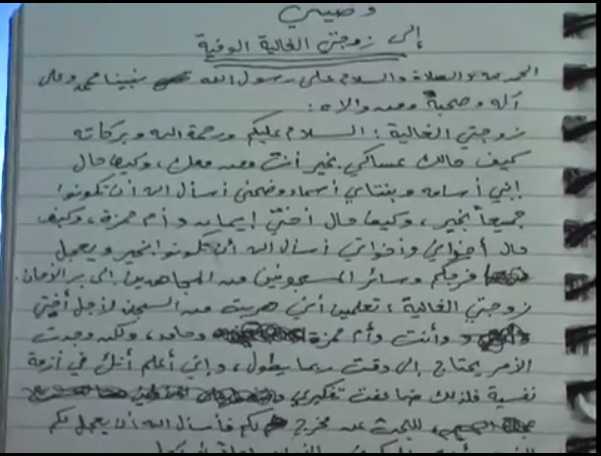 وصيتي
إلى زوجتي الغالية الوفية
الحمد لله والصلاة والسلام على رسول الله نبينا محمد وعلى
آله وصحبه ومن والاه :
زوجتي الغالية : السلام عليكم ورحمة الله وبركاته
كيف حالك عساكي بخير أنت ومن معك ، وكيف حال
إبني أسامه وبنتاي أسماء وضحى أسأل الله أن تكونوا
جميعاً بخير ، وكيف حال أختي إيمان وأم حمزة ، وكيف
حال أخواتي أسأل الله أن تكونوا بخير ويعجل
فرجكم وسائر المسجونين من المجاهدين إلى بر الأمان .
زوجتي الغالية ، تعلمين أنني هربت من السجن لأجل أختي
وأنت وأم حمزة وحامد ، ولكن وجدت
الأمر يحتاج إلى وقت ربما يطول ، وإني أعلم أنك في أزمة
نفسية فلذلك ضاعفت تفكيري
للبحث عن مخرج لكم فأسأل الله أن يعجل لكم